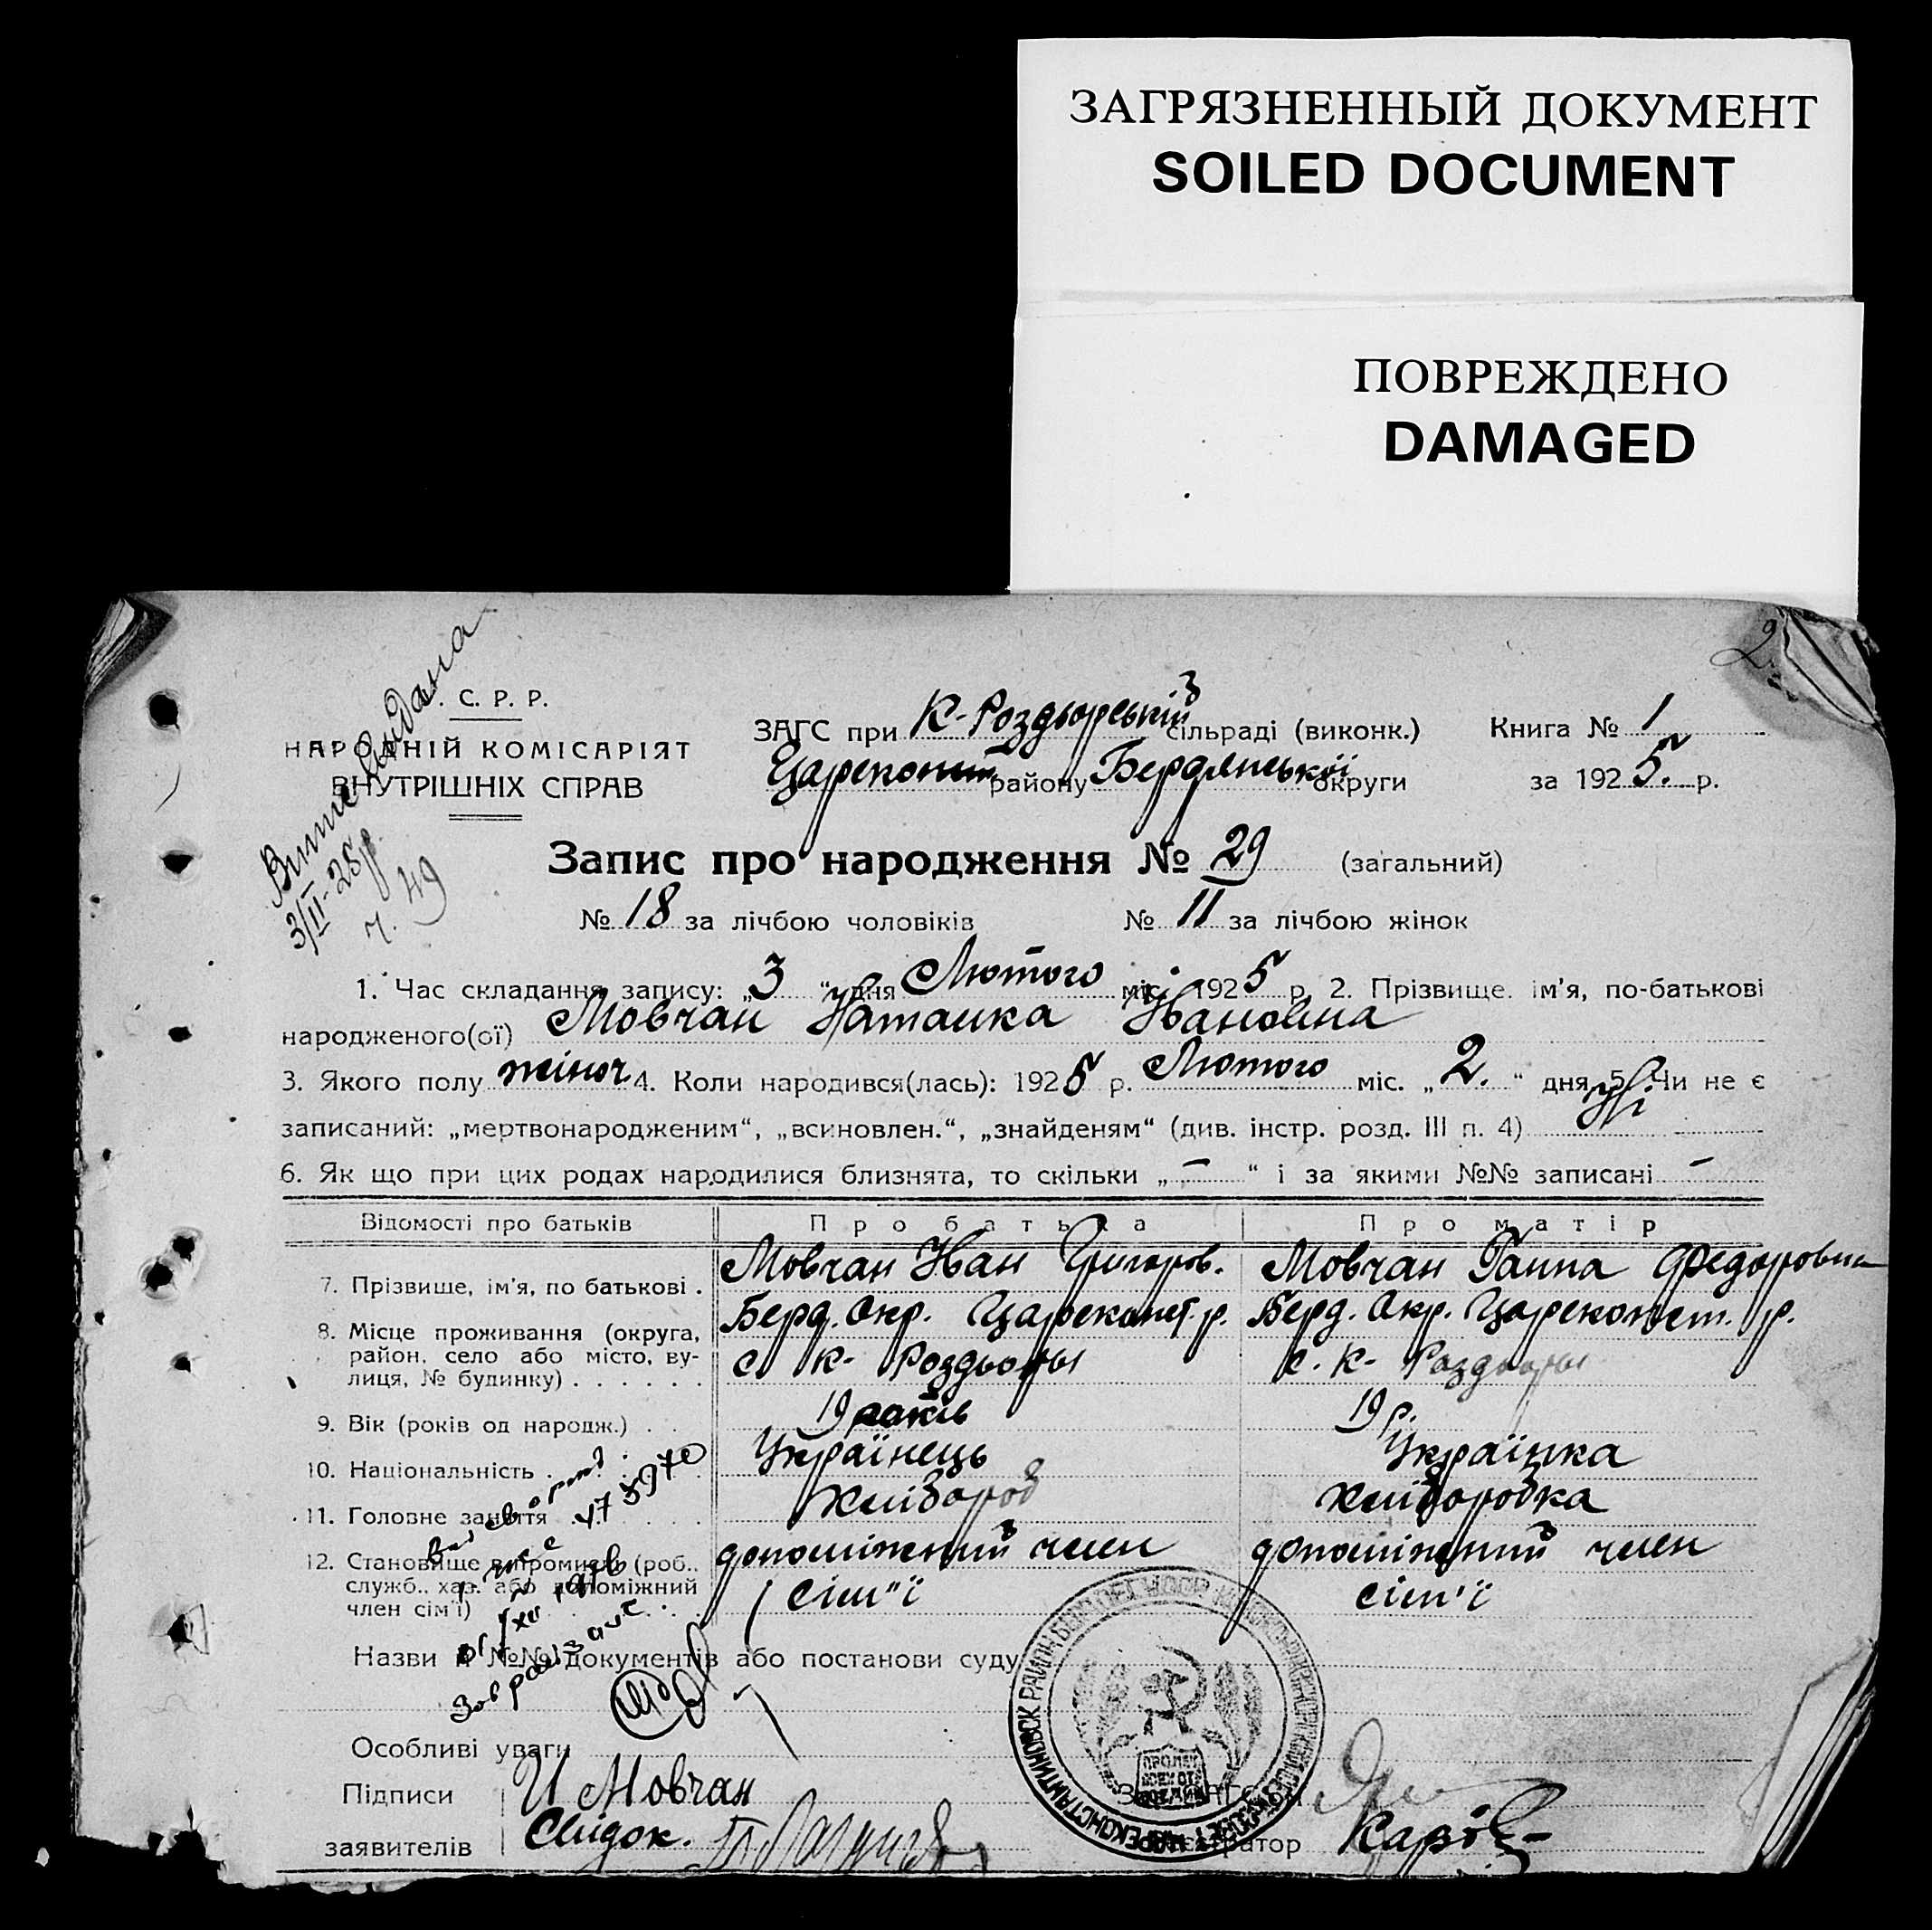 ЗАГРЯЗНЕННЫЙ ДОКУМЕНТ
SOILED DOCUMENT
ПОВРЕЖДЕНО
DAMAGED
2
Видана
3/II-28р.
ч. 49
С. Р. Р.
НАРОДНІЙ КОМІСАРІЯТ
ВНУТРІШНІХ СПРАВ
ЗАГС при К-Роздьорській сільраді (виконк.) Книга № 1
Цареконст району Бердянської округи за 1925 р.
Запис про народження № 29 (загальний)
№ 18 за лічбою чоловіків № 11 за лічбою жінок
1. Час складання запису: „3“ дня Лютого міс. 1925 р. 2. Прізвище, ім'я, по-батькові
народженого(ої) Мовчан Наталка Івановна
3. Якого полу жіноч 4. Коли народився(лась): 1925 р. Лютого міс. „2.“ дня 5. Чи не є
записаний: „мертвонародженим“, „всиновлен.“, „знайденям“ (див. інстр. розд. III п. 4)
6. Як що при цих родах народилися близнята, то скільки „—“ і за якими №№ записані —
Відомості про батьків Про батька Про матір
7. Прізвище, ім'я, по батькові . Мовчан Іван Григоров. Мовчан Ганна Федоровна
8. Місце проживання (округа, Берд. Окр. Цареконст. р. Берд. Окр. Цареконст. р.
район, село або місто, ву- с К- Роздьоры с. К- Роздьоры
лиця, № будинку) . . . . . .
9. Вік (років од народж.) . . 19 років 19 р.
10. Національність . . . Українець Українка
11. Головне заняття . . . Хлібороб Хліборобка
12. Становище в промислі (роб., допоміжний член допоміжний член
служб., хаз. або допоміжний сім"ї сім'ї
член сім'ї)
Назви й №№ документів або постанови суду
Особливі уваги
Підписи И Мовчан Зав. ЗАГС'ом
заявителів Свідок. Реєстратор